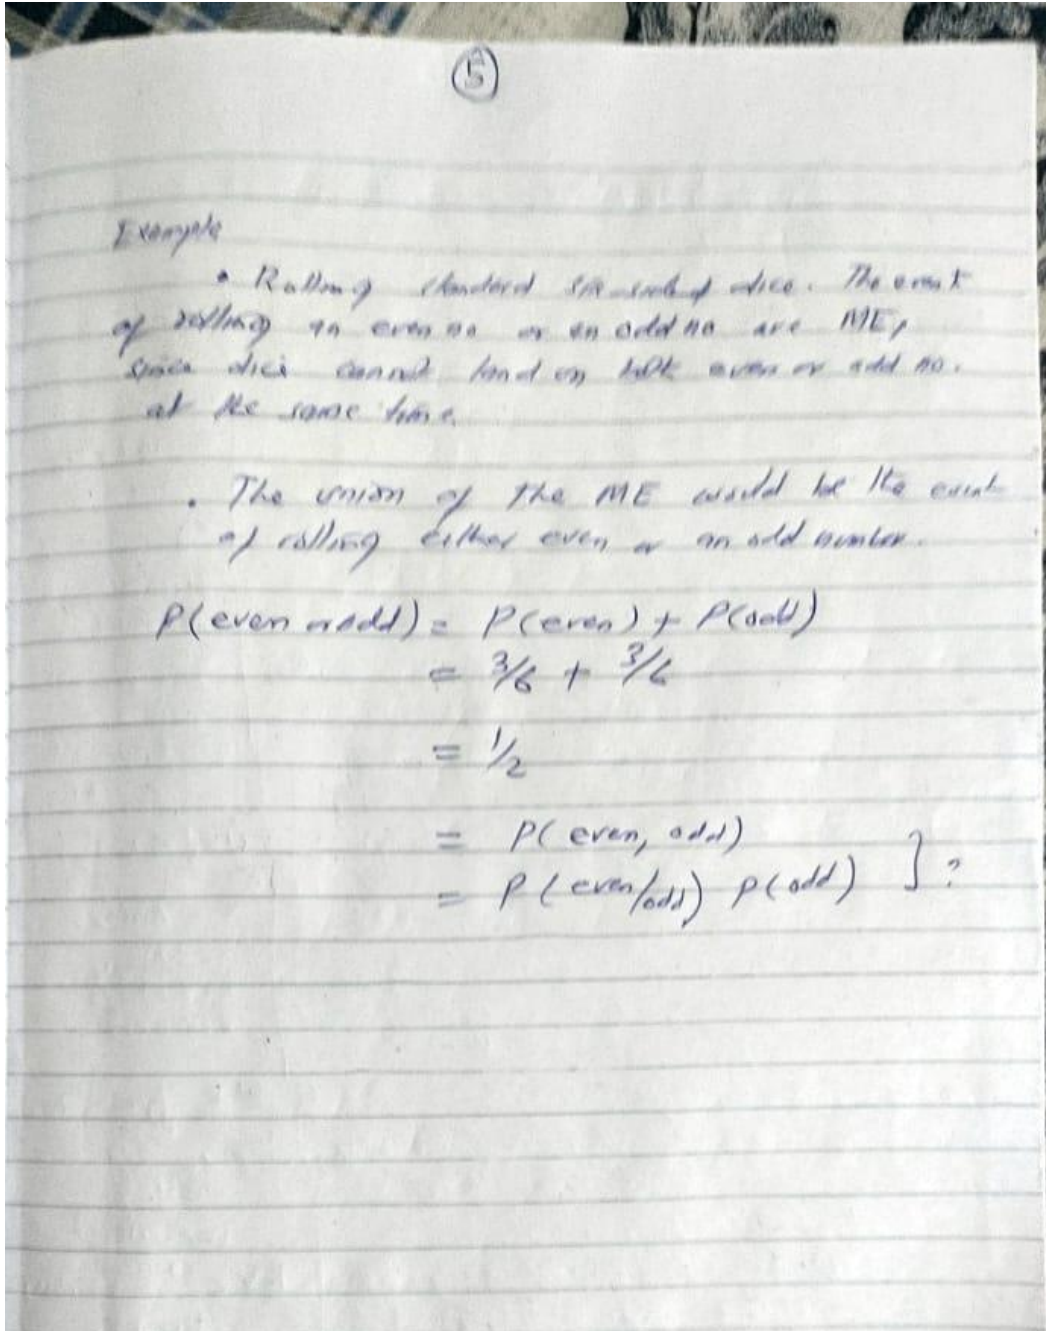 5
Example
• Rolling standard six sided dice. The event
of rolling an even no or an odd no are ME,
since dice cannot land on both even or odd no.
at the same time.
. The union of the ME would be the event
of rolling either even or an odd number.
P(even or odd) = P(even) + P(odd)
= 3/6 + 3/6
= 1/2
= P(even, odd)
= P(even/odd) P(odd) ] ?